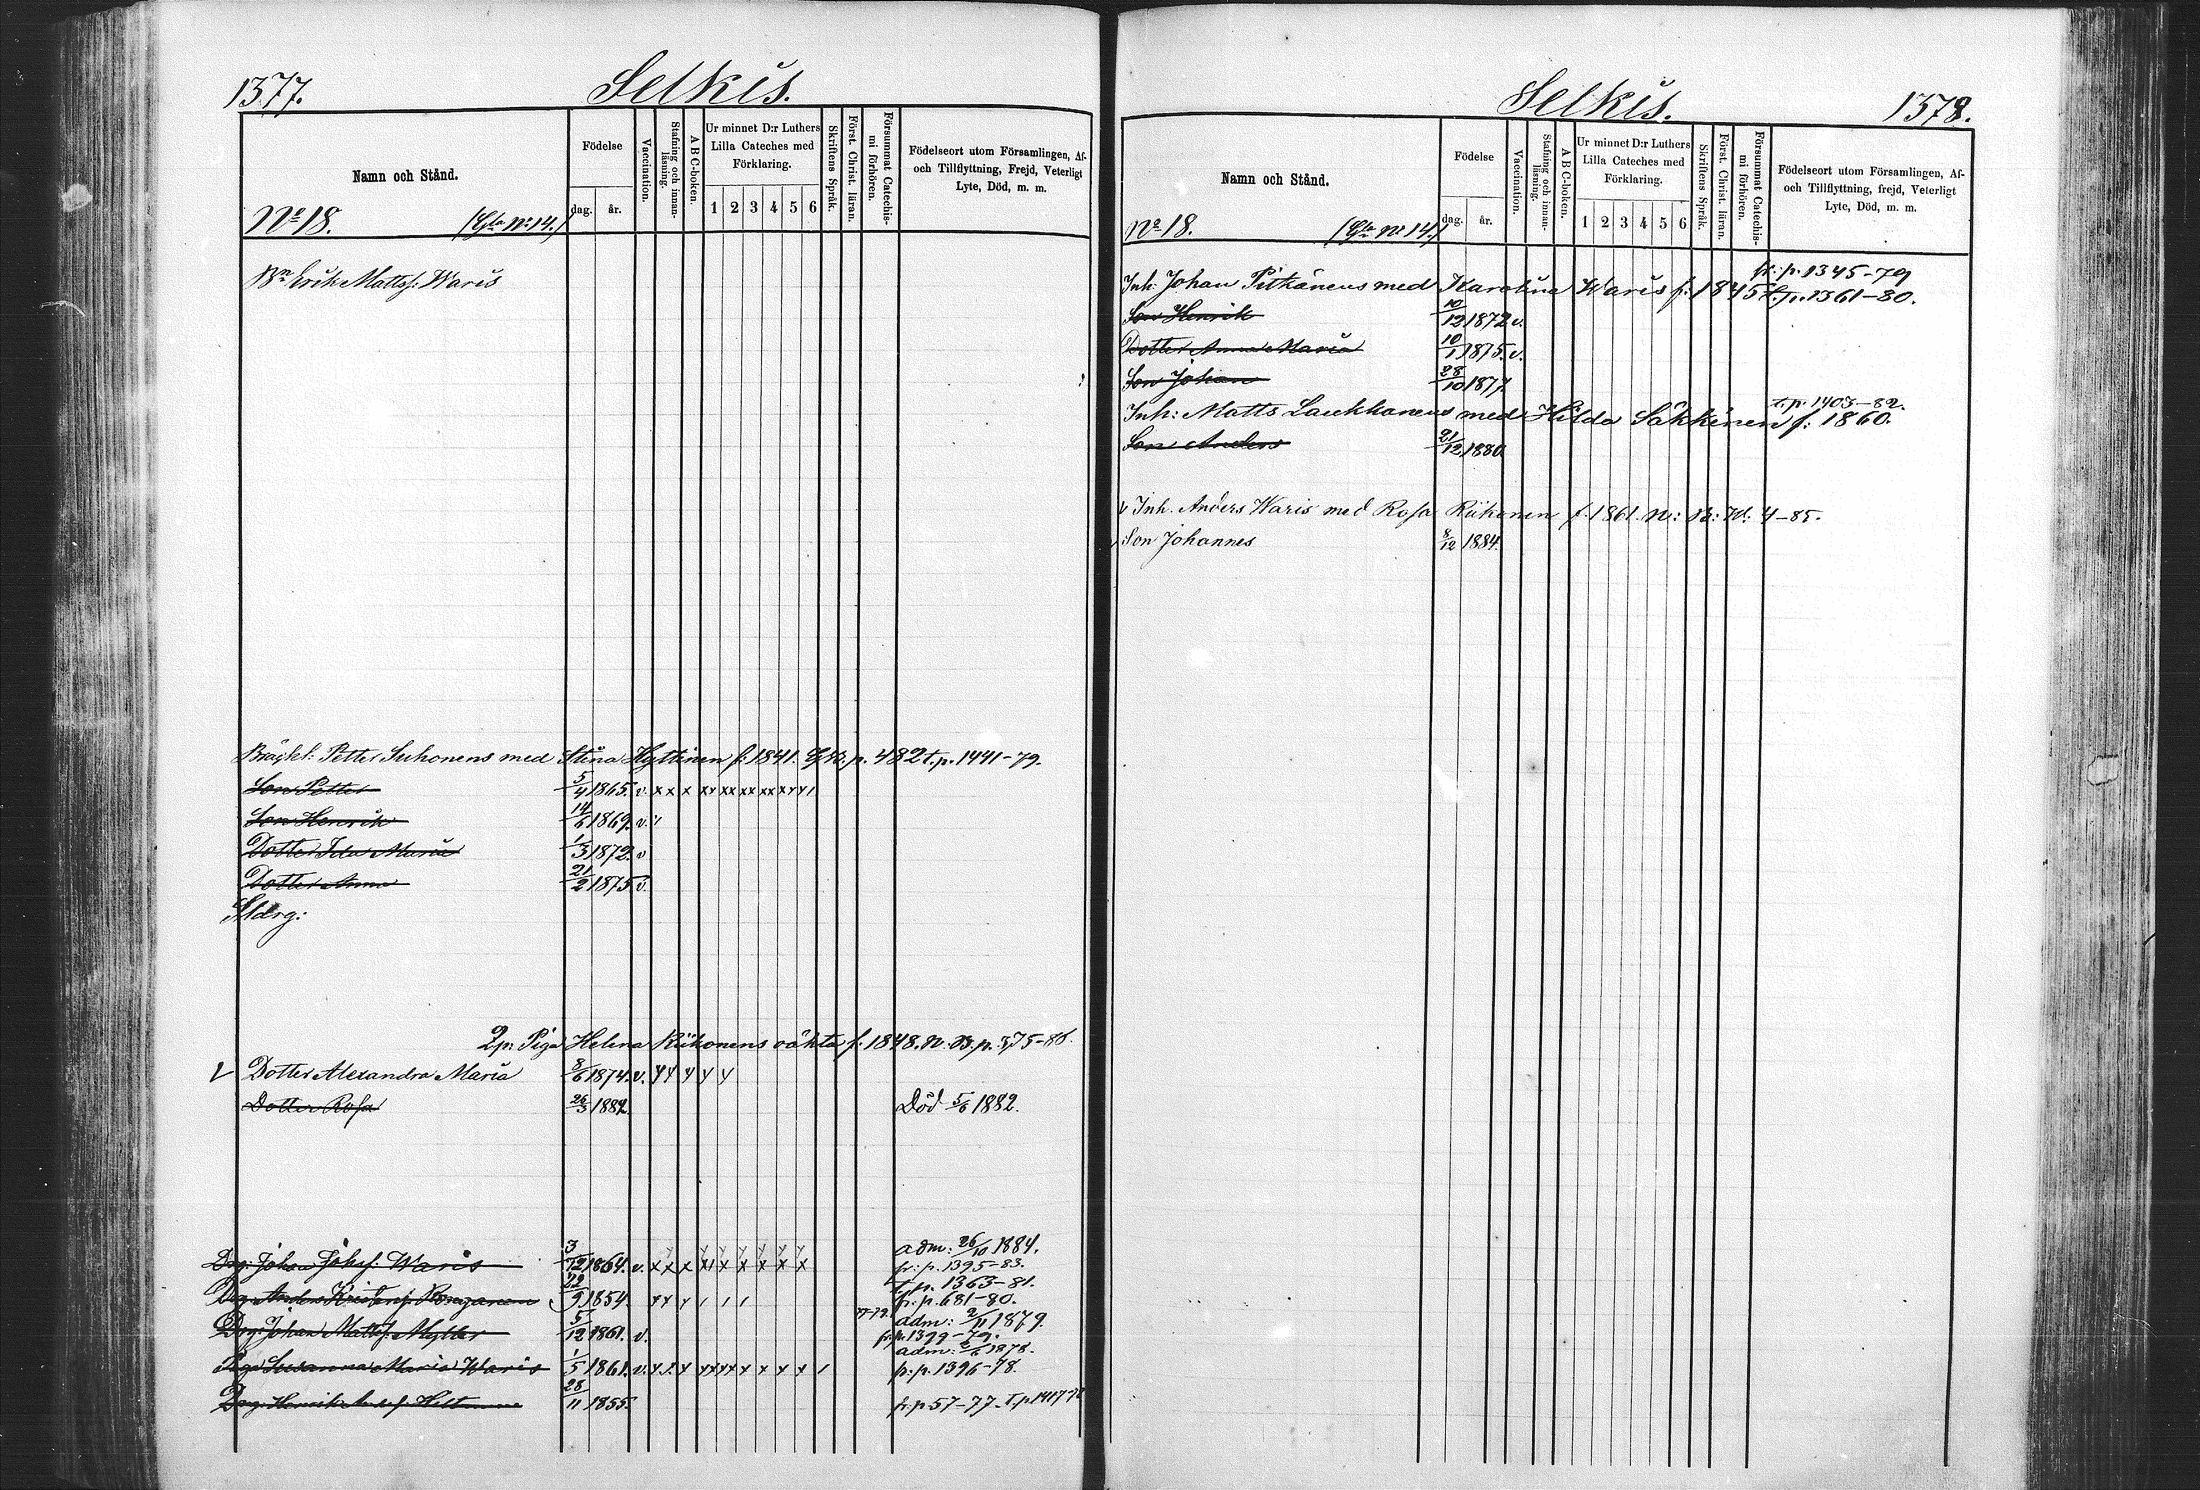 1377.
Selkis.
Namn och Stånd.
Födelse
dag. år.
Vaccination.
Stafning och innanläsning.
ABC-boken.
Ur minnet D:r Luthers
Lilla Cateches med
Förklaring.
1 2 3 4 5 6
Skriftens Språk.
Först. Christ. läran.
Försummat Catechismi förhören.
Födelseort utom Församlingen, Af-
och Tillflyttning, Frejd, Veterligt
Lyte, Död, m. m.
No 18. (Gla No 14.)
Bn Erik Mattsf. Waris
Brågkl: Petter Suhonens med Stina Hyttinen f: 1841. p. 482 t. p. 1441-79.
Son Petter 5/4 1865. v. x x x xx xx xx xx
Son Henrik 14/6 1869. v.
Dotter Ida Maria 1/3 1872. v
Dotter Anna 21/2 1875 v.
Sldrg:
2p. Piga Helena Riikonens oäkta f. 1848. N. B. p. 375-86.
V Dotter Alexandra Maria 8/6 1874. v. y y y y y
Dotter Rosa 26/3 1882. Död 5/6 1882.
adm: 26/10 1884.
Drg: Johan Johsf. Waris 3/12 1864. v. x x x x x x x x x fr: p. 1395-83.
t. p. 1363-81.
Drg Anders Kristersf. Ronganen 22/9 1854. fr. p. 681-80.
77-79. adm: 2/11 1879.
Drg: Johan Mattsf. Myller 5/12 1861. v. fr. p. 1399-79.
adm: 2/6 1878.
Piga Susanna Maria Waris 1/5 1861. v. fr. p. 1396-78.
Drg: Henrik 28/11 1855. fr. p. 57-77. t. p. 1417-78
Selkis.
1378.
Namn och Stånd.
Födelse
dag. år.
Vaccination.
Stafning och innanläsning.
ABC-boken.
Ur minnet D:r Luthers
Lilla Cateches med
Förklaring.
1 2 3 4 5 6
Skriftens Språk.
Först. Christ. läran.
Försummat Catechismi förhören.
Födelseort utom Församlingen, Af-
och Tillflyttning, frejd, Veterligt
Lyte, Död, m. m.
No 18. (Gla No 14.)
fr: p. 1345-79
Inh: Johan Pitkänens med Karolina Waris f: 1845 t. p. 1361-80.
Son Henrik 10/12 1872 v.
Dotter Anna Maria 10/1 1875. v.
Son Johan 28/10 1877
t. p. 1403-82.
Inh: Matts Laukkanens med Hilda Säkkinen f: 1860.
Son Anders 21/12 1880
V Inh. Anders Waris med Rosa Riikonen f. 1861. N: B: Id: 4-85.
Son Johannes 8/12 1884.